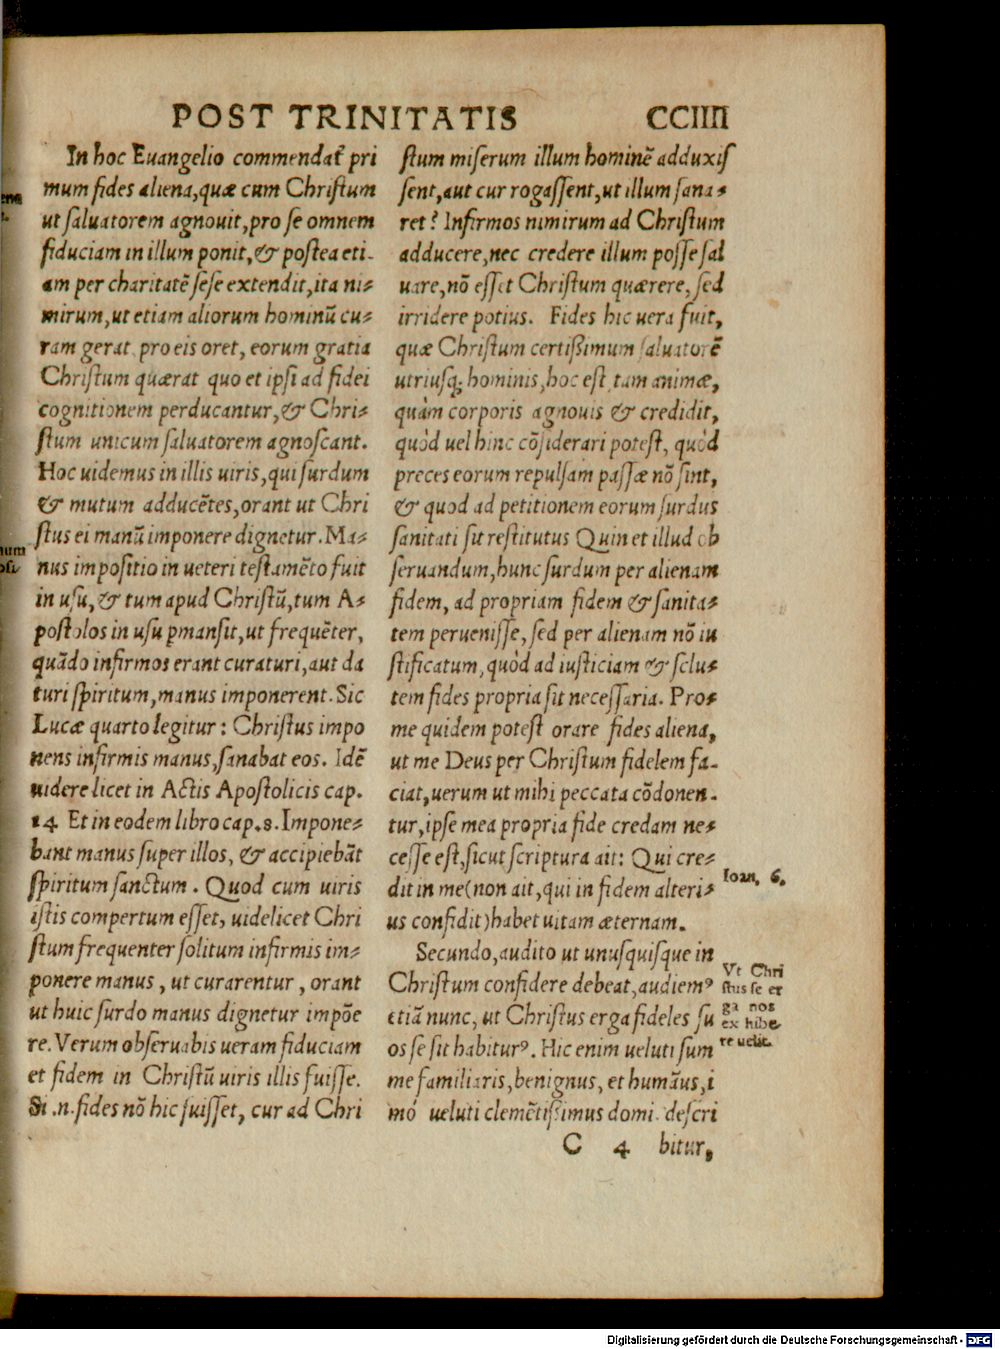 POST TRINITATIS CCIIII
In hoc Euangelio commendat᷑ pri
mum fides aliena, quæ cum Christum
ut saluatorem agnouit, pro se omnem
fiduciam in illum ponit, & postea eti-
am per charitatē sese extendit, ita ni-
mirum, ut etiam aliorum hominū cu-
ram gerat pro eis oret, eorum gratia
Christum quærat quo et ipsi ad fidei
cognitionem perducantur, & Chri-
stum unicum saluatorem agnoscant.
Hoc uidemus in illis uiris, qui surdum
& mutum adducētes, orant ut Chri
stus ei manū imponere dignetur. Ma-
nus impositio in ueteri testamēto fuit
in usu, & tum apud Christū, tum A-
postolos in usu pmansit, ut frequēter,
quādo infirmos erant curaturi, aut da
turi spiritum, manus imponerent. Sic
Lucæ quarto legitur: Christus impo
nens infirmis manus, sanabat eos. Idē
uidere licet in Actis Apostolicis cap.
14 Et in eodem libro cap. 8. Impone-
bant manus super illos, & accipiebāt
spiritum sanctum. Quod cum uiris
istis compertum esset, uidelicet Chri
stum frequenter solitum infirmis im-
ponere manus, ut curarentur, orant
ut huic surdo manus dignetur impōe
re. Verum obseruabis ueram fiduciam
et fidem in Christū uiris illis fuisse.
Si .n. fides nō hic fuisset, cur ad Chri
stum miserum illum hominē adduxis
sent, aut cur rogassent, ut illum sana-
ret? Infirmos nimirum ad Christum
adducere, nec credere illum posse sal
uare, nō esset Christum quærere, sed
irridere potius. Fides hic uera fuit,
quæ Christum certißimum saluatorē
utriusq; hominis, hoc est tam animæ,
quàm corporis agnouis & credidit,
quòd uel hinc cōsiderari potest, quòd
preces eorum repulsam passæ nō sint,
& quod ad petitionem eorum surdus
sanitati sit restitutus Quin et illud ob
seruandum, hunc surdum per alienam
fidem, ad propriam fidem & sanita-
tem peruenisse, sed per alienam nō iu
stificatum, quòd ad iusticiam & salu-
tem fides propria sit necessaria. Pro-
me quidem potest orare fides aliena,
ut me Deus per Christum fidelem fa-
ciat, uerum ut mihi peccata cōdonen-
tur, ipse mea propria fide credam ne-
cesse est, sicut scriptura ait: Qui cre-
dit in me (non ait, qui in fidem alteri-
us confidit) habet uitam æternam.
Ioan. 6.
Secundo, audito ut unusquisque in
Christum confidere debeat, audiemꝰ
etiā nunc, ut Christus erga fideles su
os se sit habiturꝰ. Hic enim ueluti sum
me familiaris, benignus, et humāus, i
mò ueluti clemētissimus domi. descri
Vt Chri
stus se er
ga nos
ex hibe-
re uelit.
C 4 bitur,
Digitalisierung gefördert durch die Deutsche Forschungsgemeinschaft - DFG